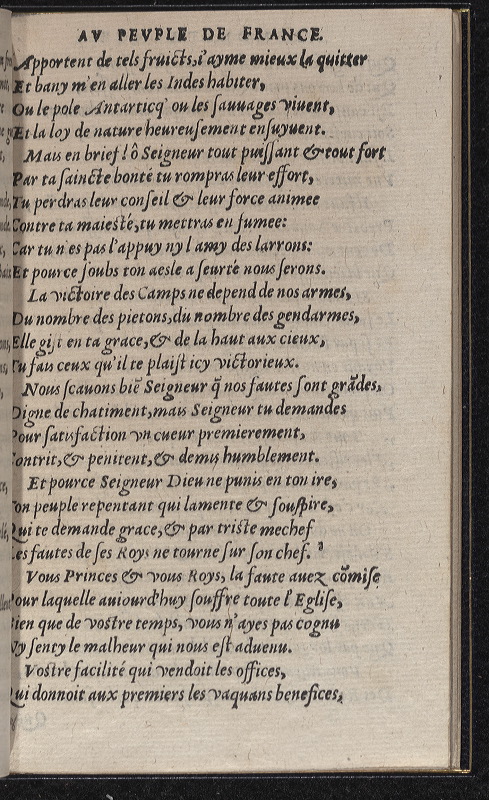 AV PEVPLE DE FRANCE.
Apportent de tels fruicts, i'ayme mieux la quitter
Et bany m'en aller les Indes habiter,
Ou le pole Antarticq' ou les sauuages viuent,
Et la loy de nature heureusement ensuyuent.
Mais en brief! ô Seigneur tout puissant & tout fort
Par ta saincte bonté tu rompras leur effort,
Tu perdras leur conseil & leur force animee
Contre ta maiesté, tu mettras en fumee:
Car tu n'es pas l'appuy ny l'amy des larrons:
Et pource soubs ton aesle a seurté nous serons.
La victoire des Camps ne depend de nos armes,
Du nombre des pietons, du nombre des gendarmes,
Elle gist en ta grace, & de la haut aux cieux,
Tu fais ceux qu'il te plaist icy victorieux.
Nous scauons biē Seigneur q̄ nos fautes sont grādes,
Digne de chatiment, mais Seigneur tu demandes
Pour satisfaction vn cueur premierement,
Contrit, & penitent, & demis humblement.
Et pource Seigneur Dieu ne punis en ton ire,
Ton peuple repentant qui lamente & souspire,
Qui te demande grace, & par triste mechef
Les fautes de ses Roys ne tourne sur son chef.
Vous Princes & vous Roys, la faute auez cōmise
Pour laquelle auiourd'huy souffre toute l'Eglise,
Bien que de vostre temps, vous n'ayes pas cognu
Ny senty le malheur qui nous est aduenu.
Vostre facilité qui vendoit les offices,
Qui donnoit aux premiers les vaquans benefices,